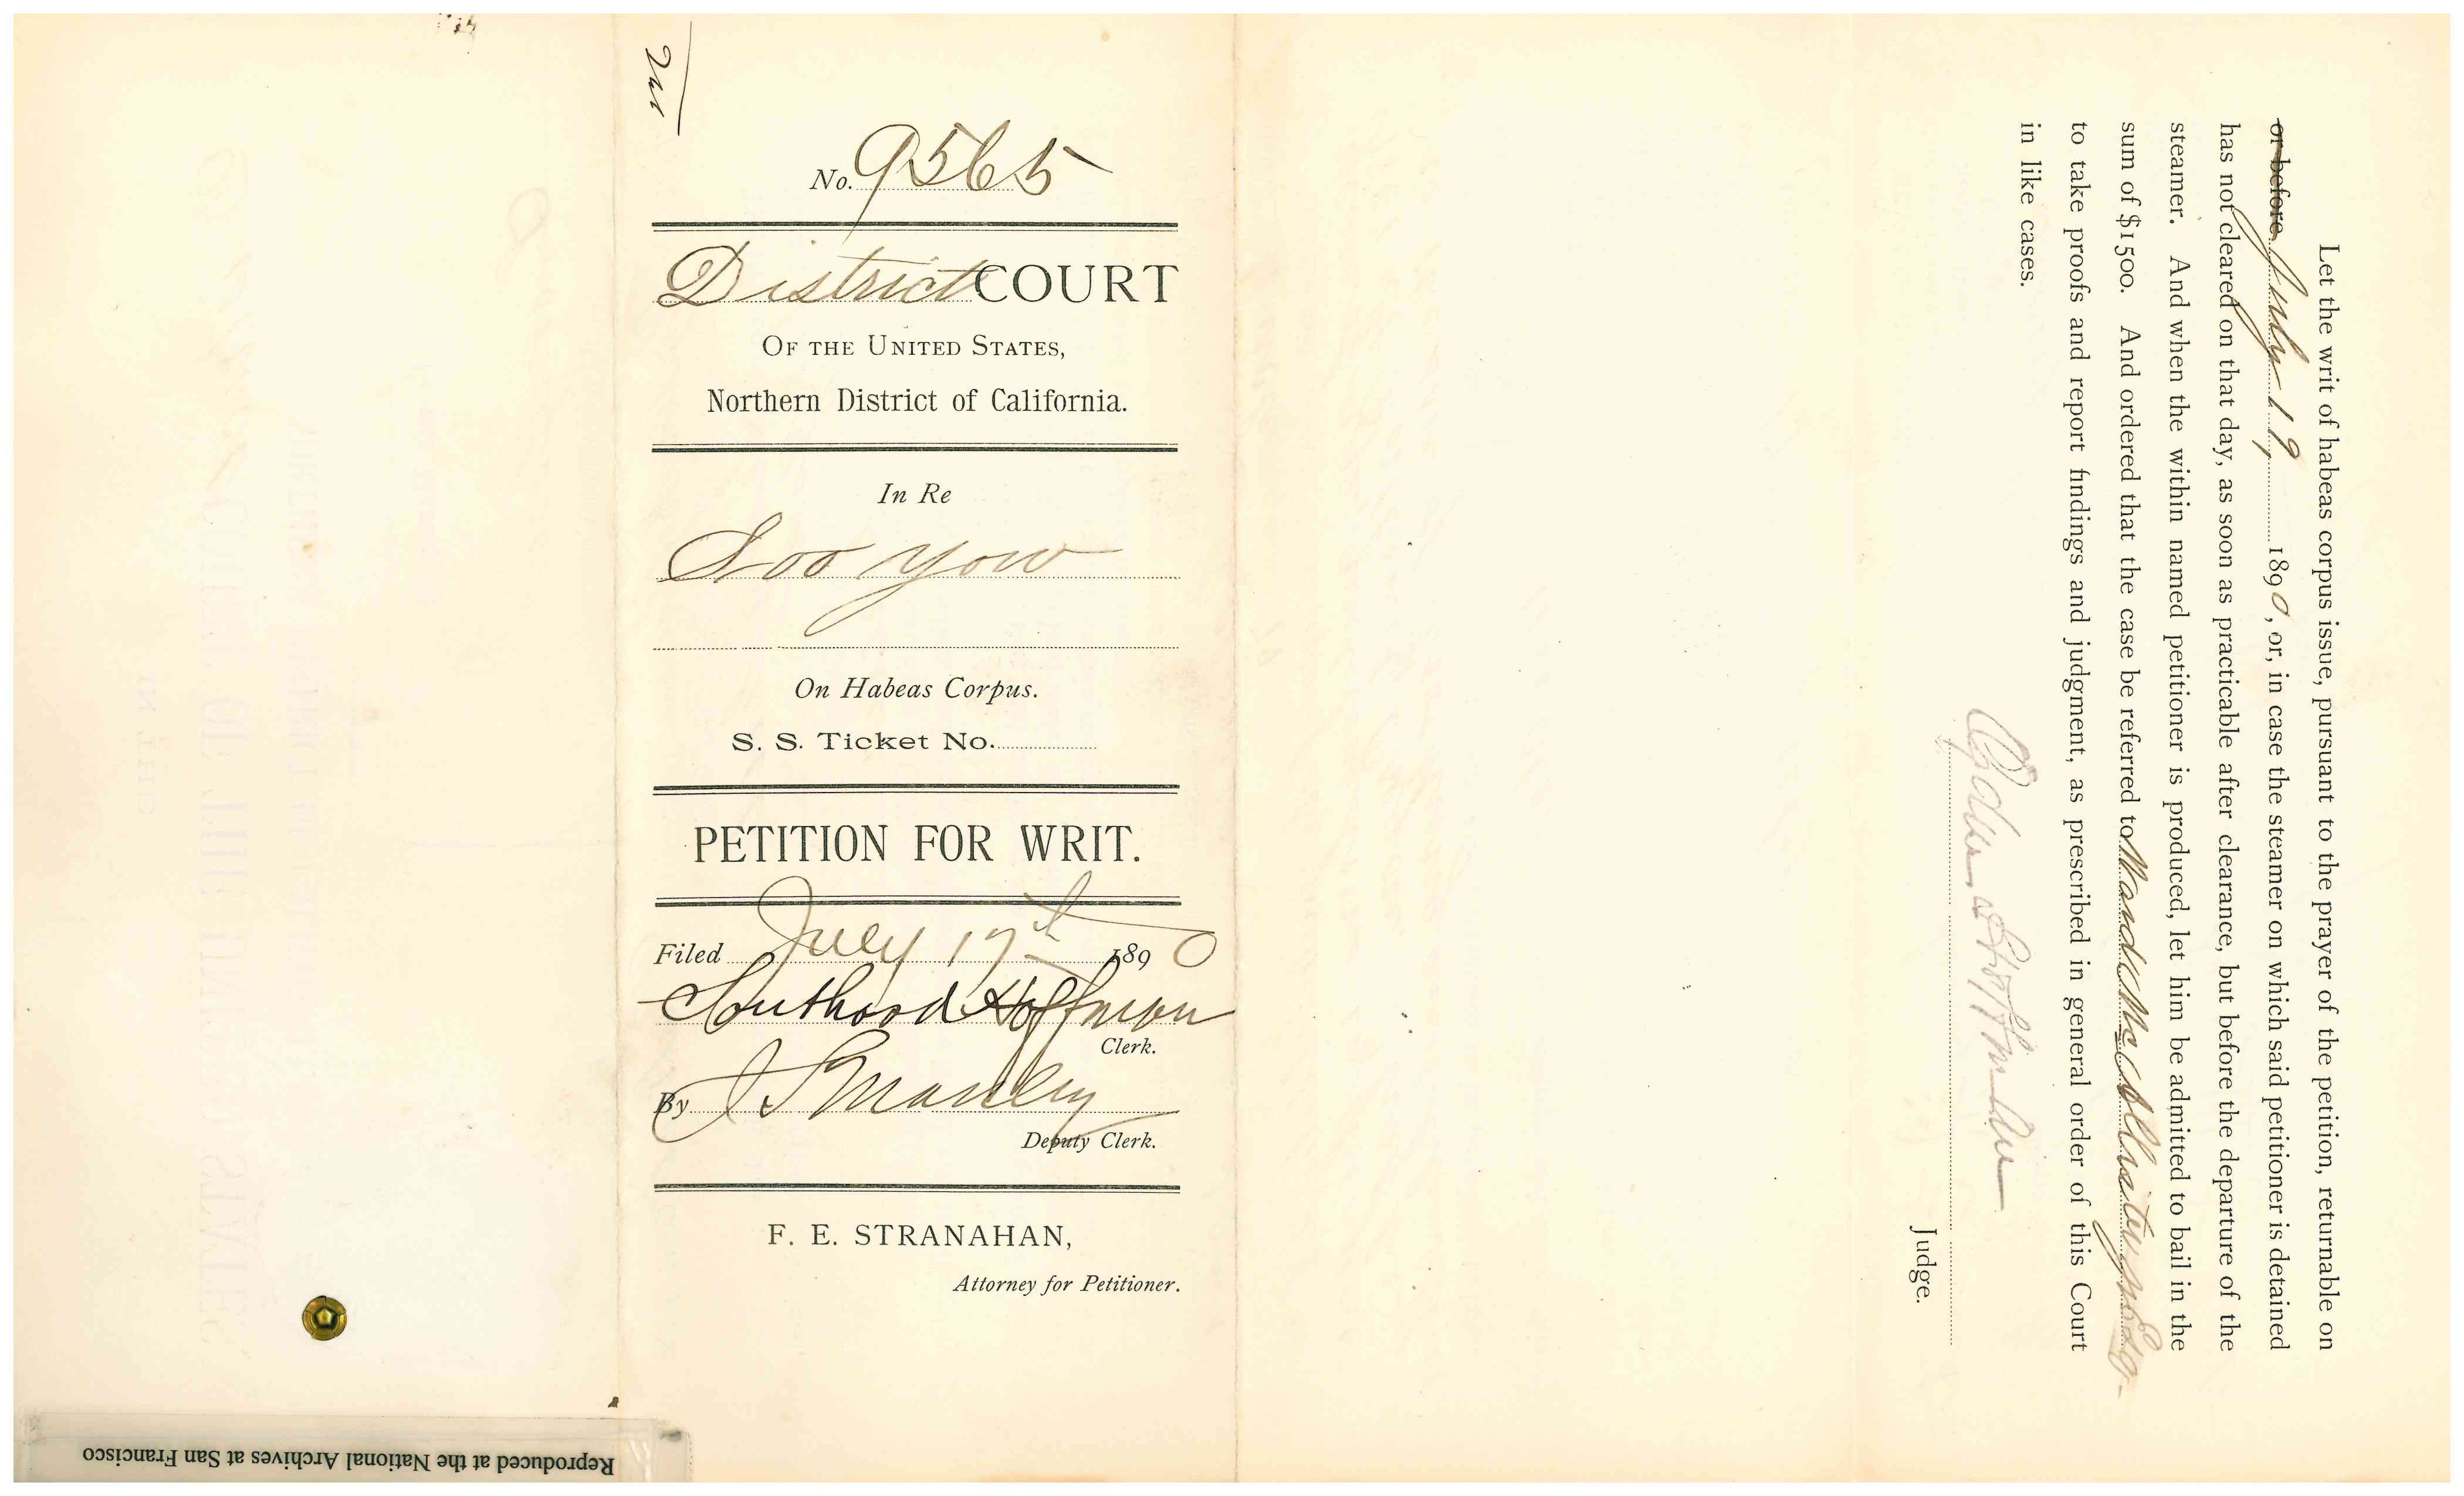 No. 9565
District COURT
OF THE UNITED STATES,
Northern District of California.
In Re
Soo Yow
On Habeas Corpus.
S. S. Ticket No.
PETITION FOR WRIT.
Filed July 17th 1890
Southard Hoffman
Clerk.
By J S Manley
Deputy Clerk.
F. E. STRANAHAN,
Attorney for Petitioner.
Let the writ of habeas corpus issue, pursuant to the prayer of the petition, returnable on
or before July 19, 1890, or, in case the steamer on which said petitioner is detained
has not cleared on that day, as soon as practicable after clearance, but before the departure of the
steamer. And when the within named petitioner is produced, let him be admitted to bail in the
sum of $1500. And ordered that the case be referred to Ward McAllister, jr Esq
to take proofs and report findings and judgment, as prescribed in general order of this Court
in like cases.
Ogden Hoffman
Judge.
Reproduced at the National Archives at San Francisco